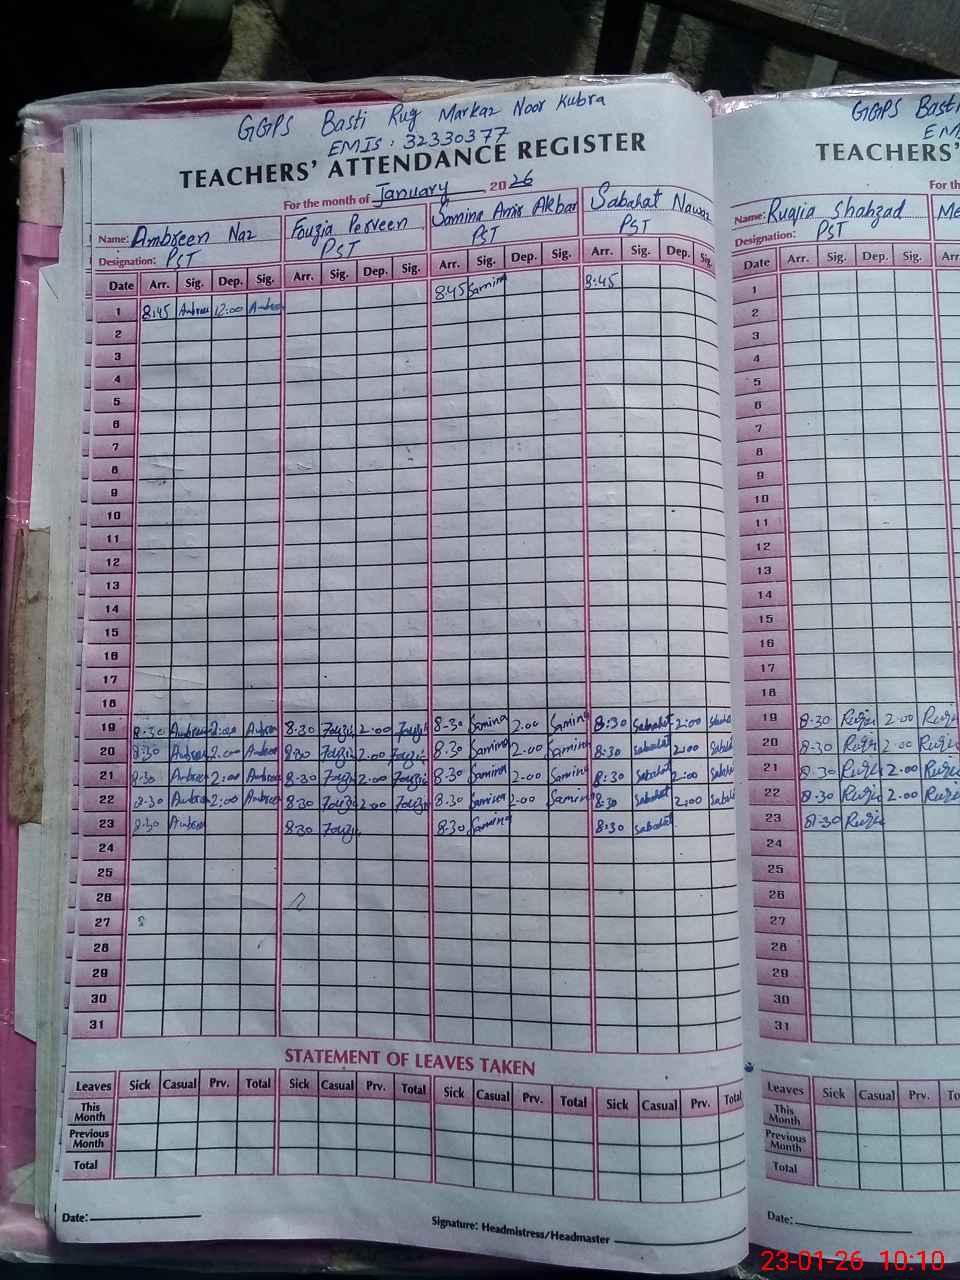 GGPS Basti Rug Markaz Noor Kubra
EMIS: 32330377
TEACHERS' ATTENDANCE REGISTER
For the month of January 2026
Name: Ambreen Naz Fouzia Perveen Samina Amir Akbar Sabahat Nawaz
Designation: PST PST PST PST
Date Arr. Sig. Dep. Sig. Arr. Sig. Dep. Sig. Arr. Sig. Dep. Sig. Arr. Sig. Dep. Sig.
1 8:45 Ambree 12:00 8:45 Samina 8:45
2
3
4
5
6
7
8
9
10
11
12
13
14
15
16
17
18
19 8:30 Ambreen 2:00 Ambren 8:30 Fouzia 2:00 Fouzia 8:30 Samina 2:00 Samina 8:30 Sabahat 2:00
20 8:30 Ambreen 2:00 Ambreen 8:30 Fouzia 2:00 Fouzia 8:30 Samina 2:00 Samina 8:30 Sabahat 2:00 Sabah
21 8:30 Ambreen 2:00 Ambreen 8:30 Fouzia 2:00 Fouzia 8:30 Samina 2:00 Samina 8:30 Sabahat 2:00 Sabah
22 8:30 Ambreen 2:00 Ambreen 8:30 Fouzia 2:00 Fouzia 8:30 Samina 2:00 Samina 8:30 Sabahat 2:00 Sabah
23 8:30 Ambree 8:30 Fouzia 8:30 Samina 8:30 Sabahat
24
25
26
27
28
29
30
31
STATEMENT OF LEAVES TAKEN
Leaves Sick Casual Prv. Total Sick Casual Prv. Total Sick Casual Prv. Total Sick Casual Prv. Total
This Month
Previous Month
Total
Date:
Signature: Headmistress/Headmaster
GGPS Basti
EM
TEACHERS'
For th
Name: Ruqia Shahzad Me
Designation: PST
Date Arr. Sig. Dep. Sig. Arr.
1
2
3
4
5
6
7
8
9
10
11
12
13
14
15
16
17
18
19 8:30 Ruqia 2:00 Ruqia
20 8:30 Ruqia 2:00 Ruqia
21 8:30 Ruqia 2:00 Ruqia
22 8:30 Ruqia 2:00 Ruqia
23 8:30 Ruqia
24
25
26
27
28
29
30
31
Leaves Sick Casual Prv. To
This Month
Previous Month
Total
Date:
23-01-26 10:10